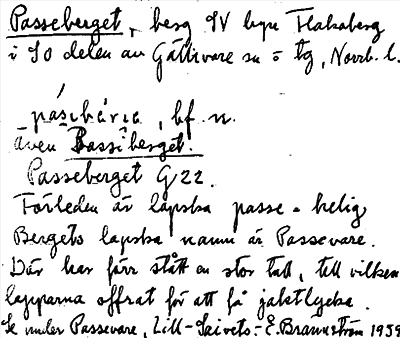 Passeberget, berg SV byn Flakaberg
i SO delen av Gällivare sn o tg, Norrb. l.
pásɛbǽrjə, bf. n.
även Bassiberget.
Passeberget G 22.
Förleden är lapska passe = helig
Bergets lapska namn är Passevare.
Där har förr stått en stor tall, till vilken
lapparna offrat för att få jaktlycka.
Se under Passevare, Lill-Seivets.- E. Brännström 1939